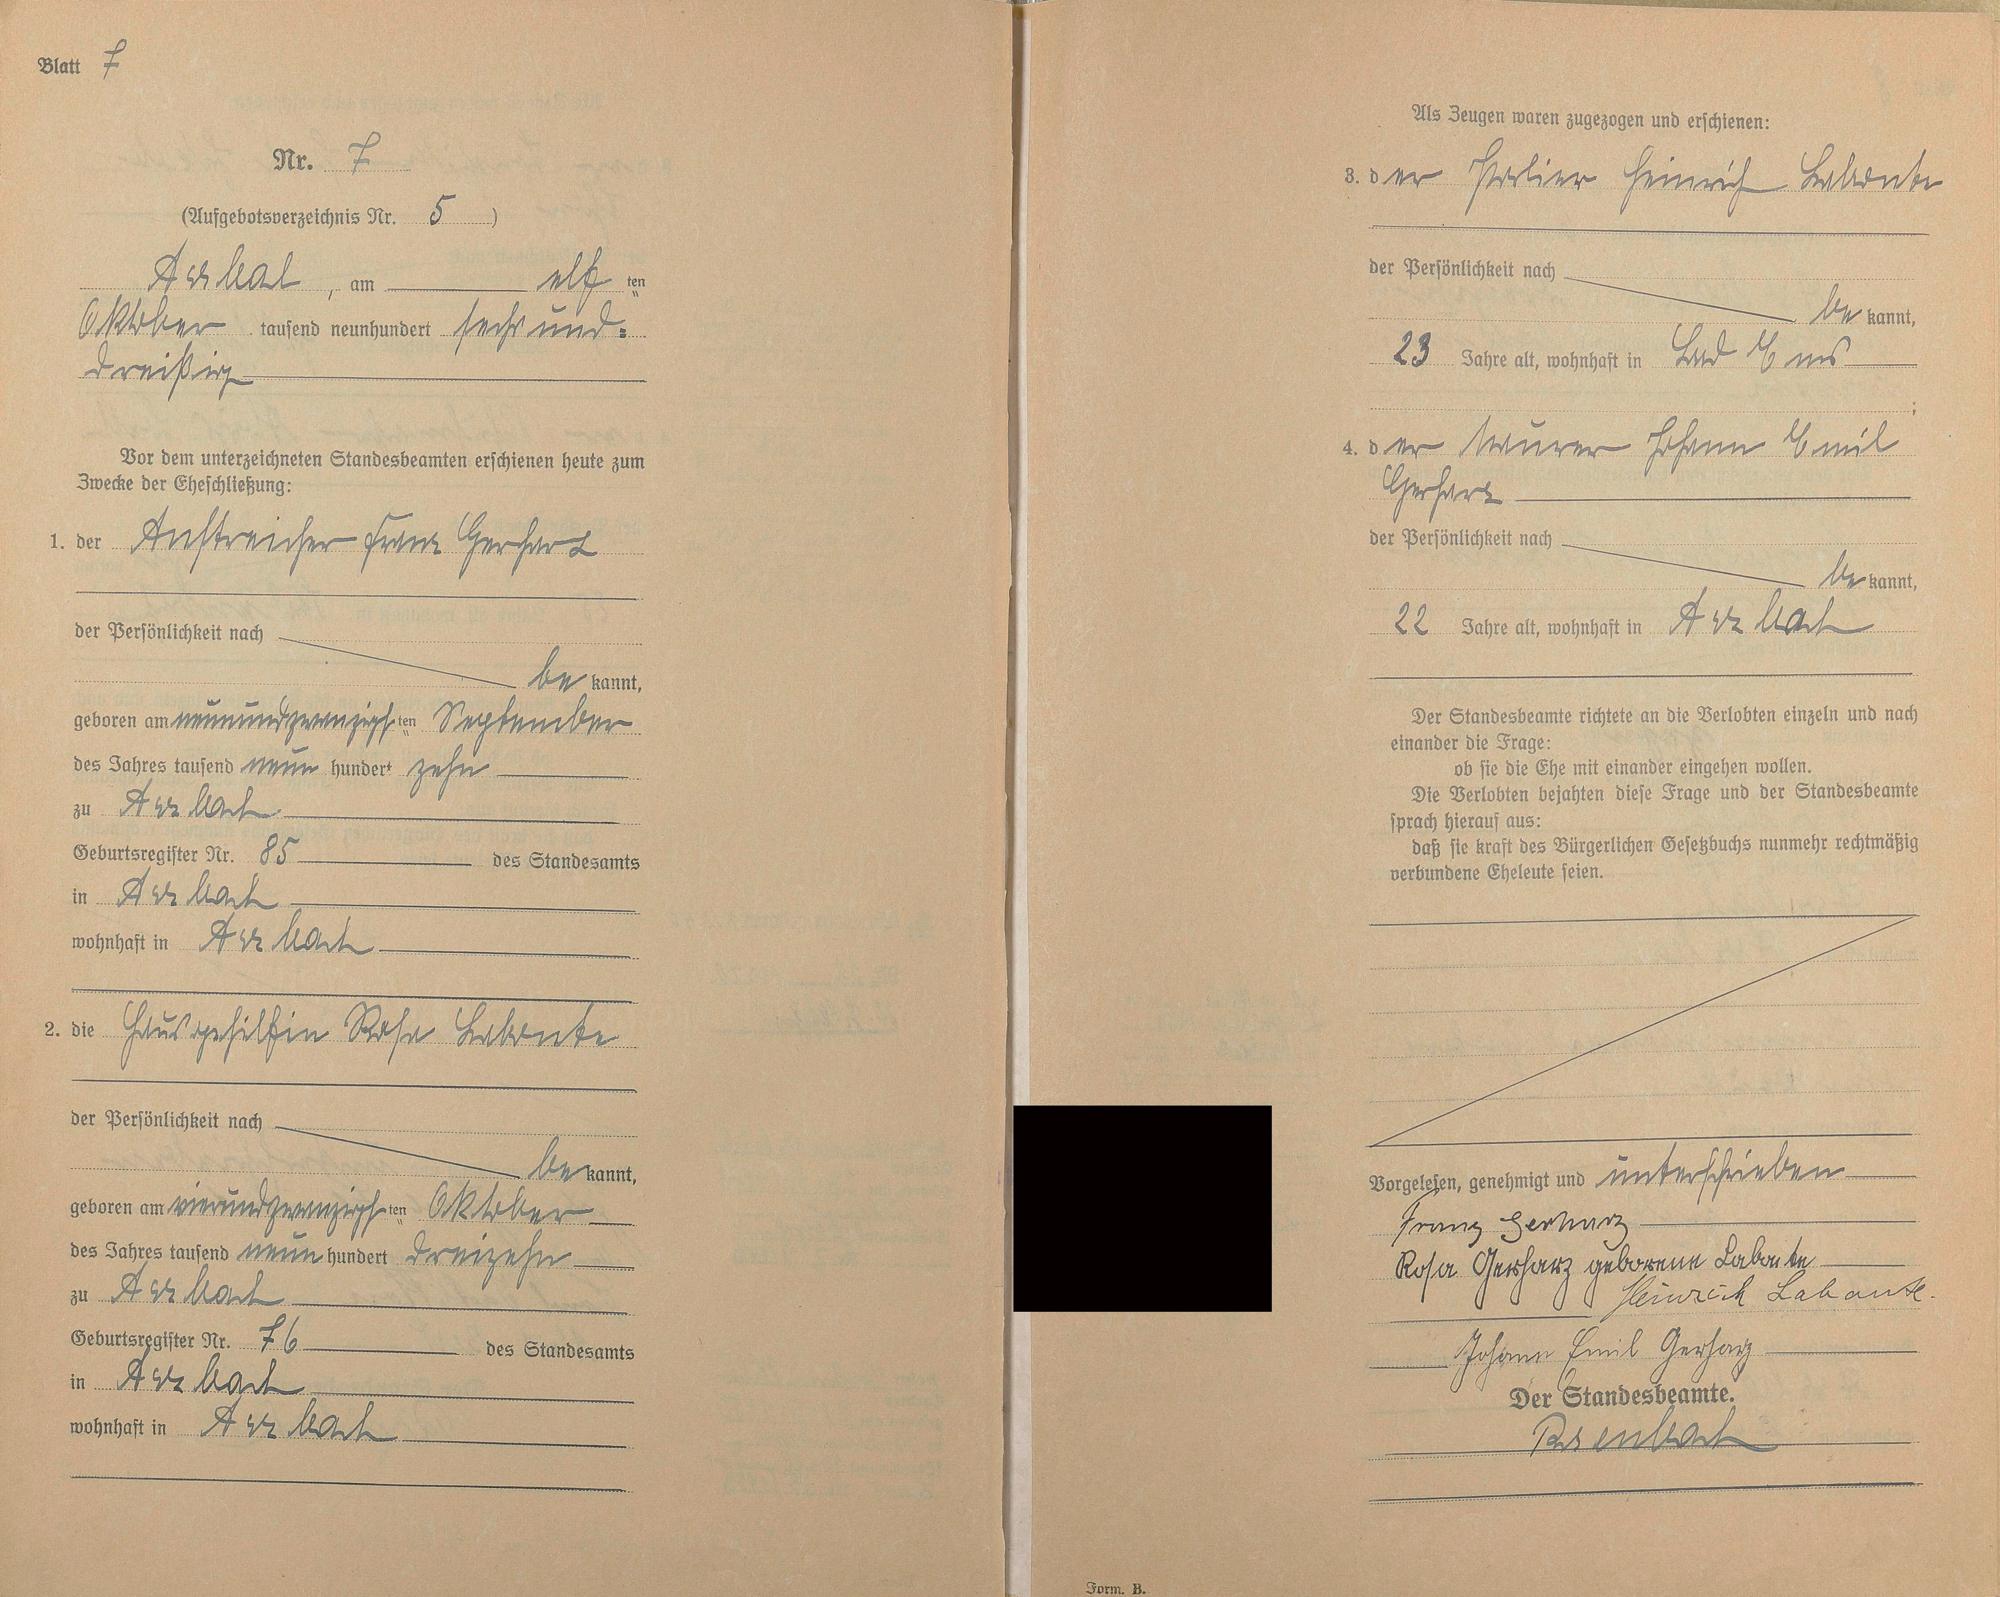 Blatt 7
Nr. 7
(Aufgebotsverzeichnis Nr. 5)
Arzbach, am elften
Oktober tausend neunhundert sechsund=
dreißig
Vor dem unterzeichneten Standesbeamten erschienen heute zum
Zwecke der Eheschließung:
1. der Anstreicher Franz Gerharz
der Persönlichkeit nach
bekannt,
geboren am neunundzwanzigsten September
des Jahres tausend neunhundert zehn
zu Arzbach
Geburtsregister Nr. 85 des Standesamts
in Arzbach
wohnhaft in Arzbach
2. die Hausgehilfin Rosa Labonte
der Persönlichkeit nach
bekannt,
geboren am vierundzwanzigsten Oktober
des Jahres tausend neunhundert dreizehn
zu Arzbach
Geburtsregister Nr. 76 des Standesamts
in Arzbach
wohnhaft in Arzbach
Als Zeugen waren zugezogen und erschienen:
3. der Heinrich Labonte
der Persönlichkeit nach
bekannt,
23 Jahre alt, wohnhaft in Bad Ems
;
4. der Maurer Johann Emil
Gerharz
der Persönlichkeit nach
bekannt,
22 Jahre alt, wohnhaft in Arzbach
Der Standesbeamte richtete an die Verlobten einzeln und nach
einander die Frage:
ob sie die Ehe mit einander eingehen wollen.
Die Verlobten bejahten diese Frage und der Standesbeamte
sprach hierauf aus:
daß sie kraft des Bürgerlichen Gesetzbuchs nunmehr rechtmäßig
verbundene Eheleute seien.
Vorgelesen, genehmigt und unterschrieben
Franz Gerharz
Rosa Gerharz geborene Labonte
Heinrich Labonte.
Johann Emil Gerharz
Der Standesbeamte.
Form. B.